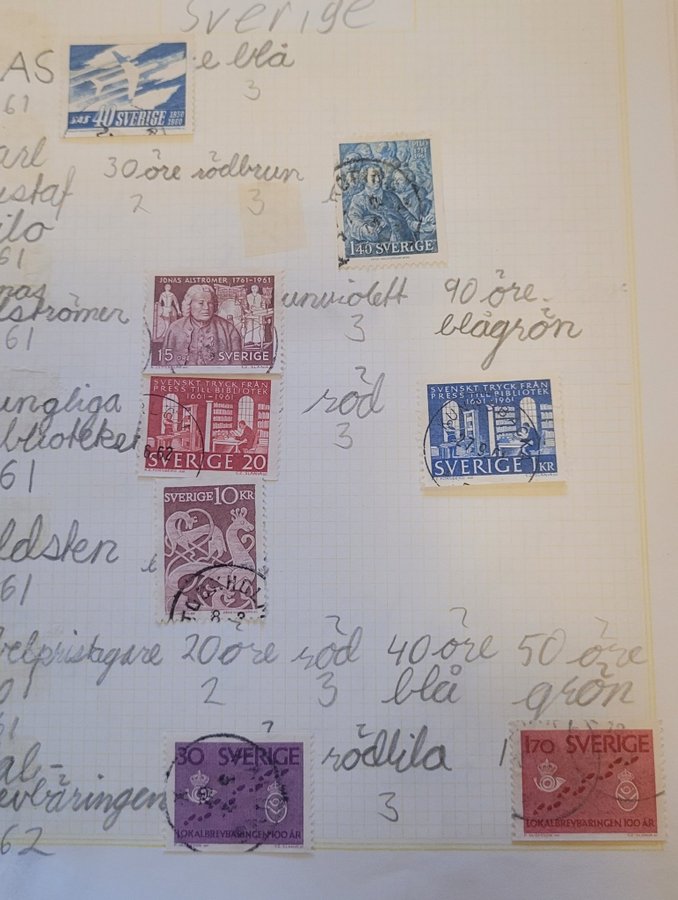 Sverige
AS
e blå
61
3
SAS 40 SVERIGE 1950 1960
arl
30 öre rödbrun
ustaf
2
3
ilo
61
1.40 SVERIGE
JONAS ALSTRÖMER 1761-1961
15 ÖRE SVERIGE
nas
unviolett
90 öre
strömer
3
blågrön
61
SVENSKT TRYCK FRÅN
PRESS TILL BIBLIOTEK
1661-1961
SVERIGE 20
ungliga
röd
blioteket
3
61
SVENSKT TRYCK FRÅN
PRESS TILL BIBLIOTEK
1661-1961
SVERIGE 1 KR
SVERIGE 10 KR
ldsten
61
elpristagare
20 öre
röd
40 öre
50 öre
2
3
blå
grön
61
30 SVERIGE
LOKALBREVBÄRINGEN 100 ÅR
al-
rödlila
1
evbäringen
3
62
170 SVERIGE
LOKALBREVBÄRINGEN 100 ÅR